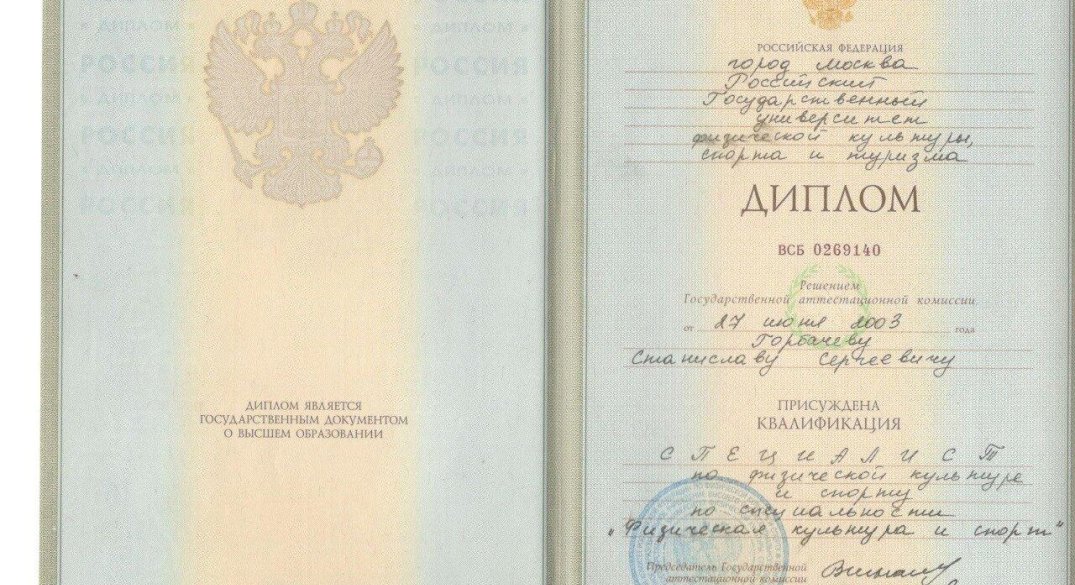 « ДИПЛОМ »
ДИПЛОМ »
РОССИЯ
РОССИЯ
« ДИПЛОМ »
ДИПЛОМ »
РОССИЯ
РОССИЯ
« ДИПЛОМ »
ДИПЛОМ »
РОССИЯ
РОССИЯ
ДИПЛОМ ЯВЛЯЕТСЯ
ГОСУДАРСТВЕННЫМ ДОКУМЕНТОМ
О ВЫСШЕМ ОБРАЗОВАНИИ
РОССИЙСКАЯ ФЕДЕРАЦИЯ
город Москва
Российский
Государственный
университет
физической культуры,
спорта и туризма
ДИПЛОМ
ВСБ 0269140
Решением
Государственной аттестационной комиссии
от 27 июня 2003 года
Горбачеву
Станиславу Сергеевичу
ПРИСУЖДЕНА
КВАЛИФИКАЦИЯ
СПЕЦИАЛИСТ
по физической культуре
и спорту
по специальности
"Физическая культура и спорт"
Председатель Государственной
аттестационной комиссии